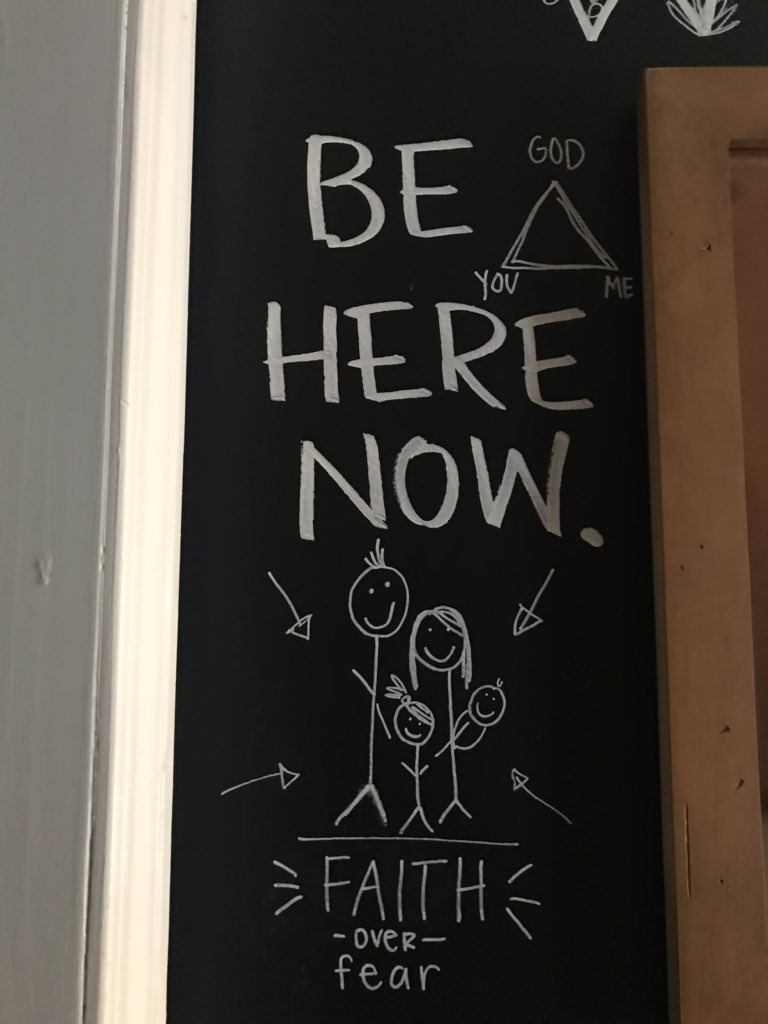 BE
GOD
YOU ME
HERE
NOW.
FAITH
-OVER-
fear